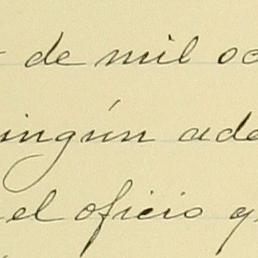 de mil oc
ningún ade
el oficio q